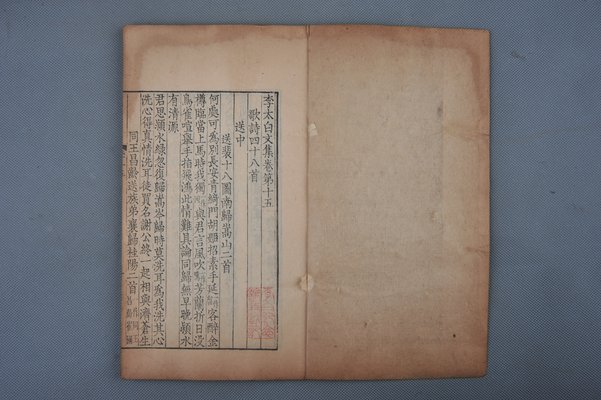 李太白文集卷第十五
歌詩四十八首
送中
送裴十八圖南歸嵩山二首
何處可為別長安青綺門胡姬招素手延客醉金
樽臨當上馬時我獨與君言風吹芳蘭折日没
鳥雀喧舉手指飛鴻此情難具論同歸無早晚潁水
有清源
君思潁水綠忽復歸嵩岑歸時莫洗耳為我洗其心
洗心得真情洗耳徒買名謝公終一起相與濟蒼生
同王昌齡送族弟襄歸桂陽二首